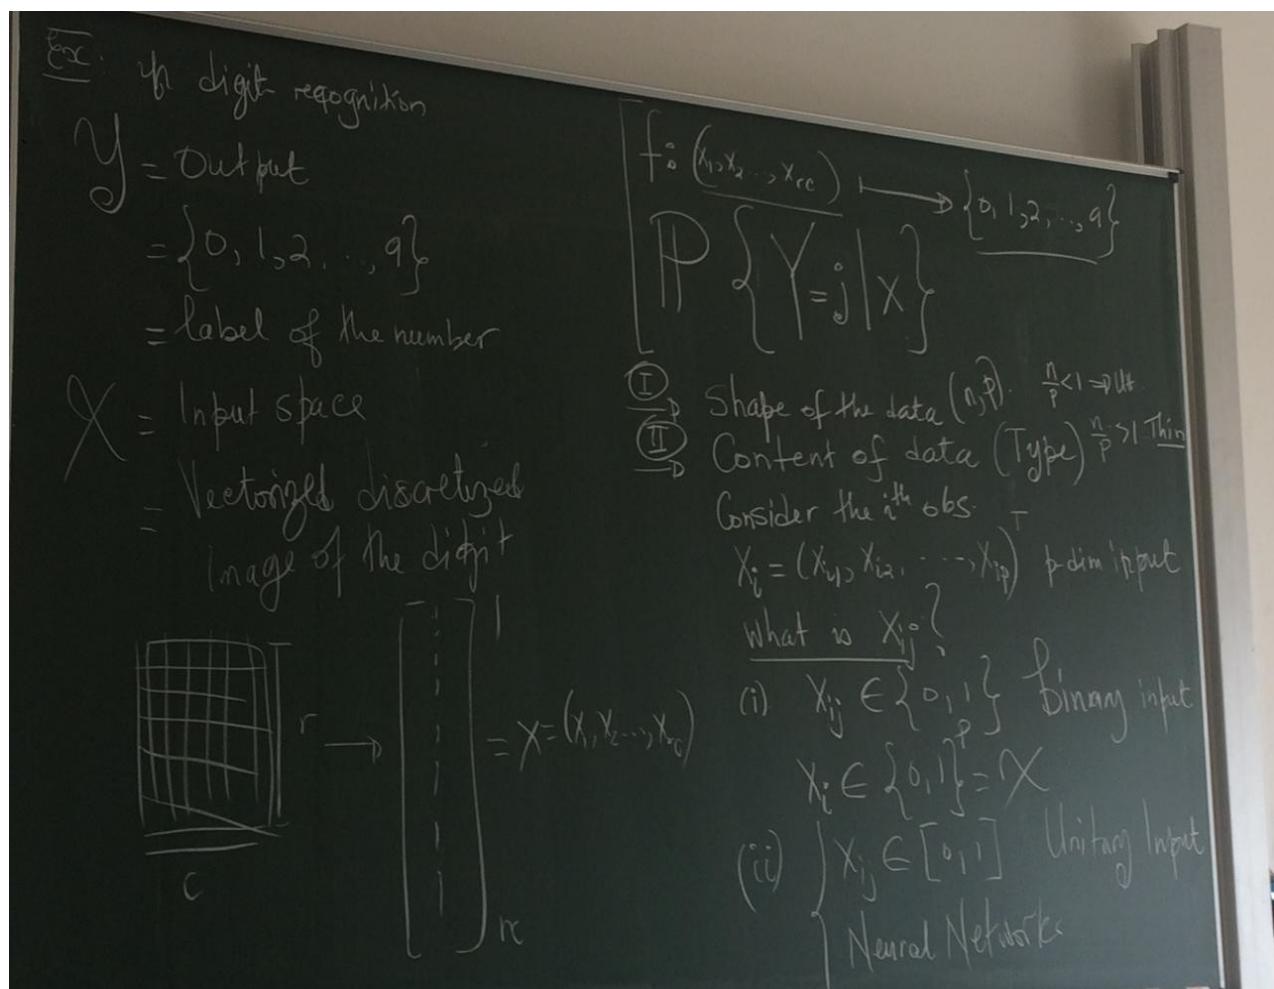 Ex: In digit recognition
Y = Output
= {0, 1, 2, ..., 9}
= label of the number
X = Input space
= Vectorized discretized
image of the digit
r → = X = (X₁, X₂ ..., X_rc)
1
c
rc
f: (X₁, X₂ ..., X_rc) ⟼ {0, 1, 2, ..., 9}
ℙ {Y = j | X}
Ⅰ Shape of the data (n, p). n/p < 1 ⇒
Ⅱ Content of data (Type) n/p > 1 Thin
Consider the iᵗʰ obs.
X_i = (X_i1, X_i2, ..., X_ip)ᵀ p-dim input
What is X_ij?
(i) X_ij ∈ {0, 1} binary input
X_i ∈ {0, 1}ᵖ = X
(ii) X_ij ∈ [0, 1] Unitary Input
Neural Networks